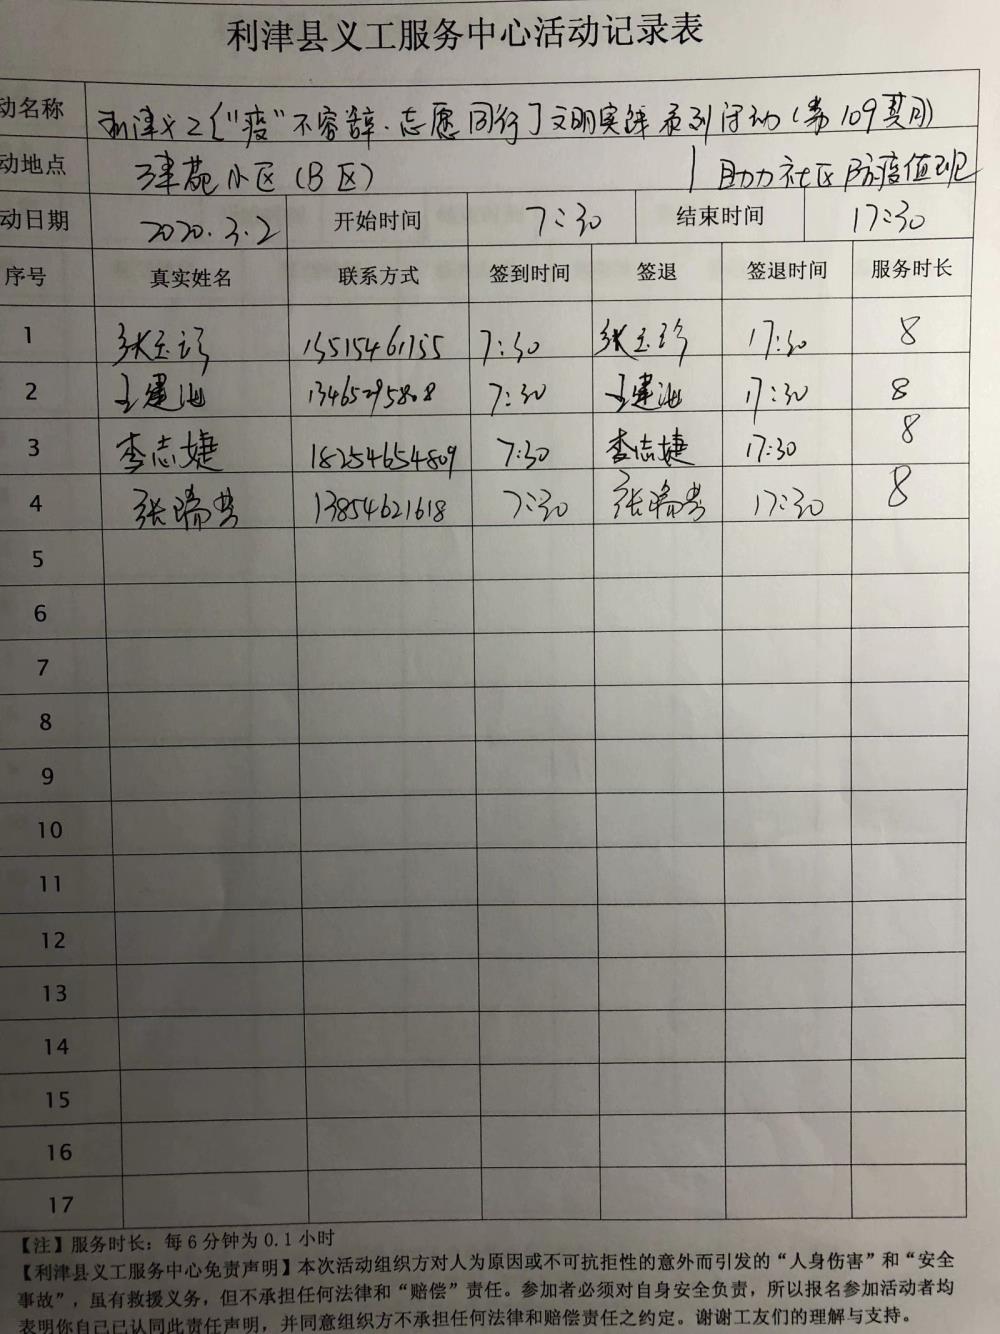 利津县义工服务中心活动记录表
动名称 利津义工{"疫"不容辞·志愿同行}文明实践系列活动(第109期)
动地点 津苑小区(B区) 助力社区防疫值班
动日期 2020.3.2 开始时间 7:30 结束时间 17:30
序号 真实姓名 联系方式 签到时间 签退 签退时间 服务时长
1 张玉珍 13515461755 7:30 张玉珍 17:30 8
2 王建海 13465295808 7:30 王建海 17:30 8
3 李志婕 18254654809 7:30 李志婕 17:30 8
4 张瑞芸 13854621618 7:30 张瑞芸 17:30 8
5
6
7
8
9
10
11
12
13
14
15
16
17
【注】服务时长：每6分钟为0.1小时
【利津县义工服务中心免责声明】本次活动组织方对人为原因或不可抗拒性的意外而引发的“人身伤害”和“安全
事故”，虽有救援义务，但不承担任何法律和“赔偿”责任。参加者必须对自身安全负责，所以报名参加活动者均
表明你自己已认同此责任声明，并同意组织方不承担任何法律和赔偿责任之约定。谢谢工友们的理解与支持。